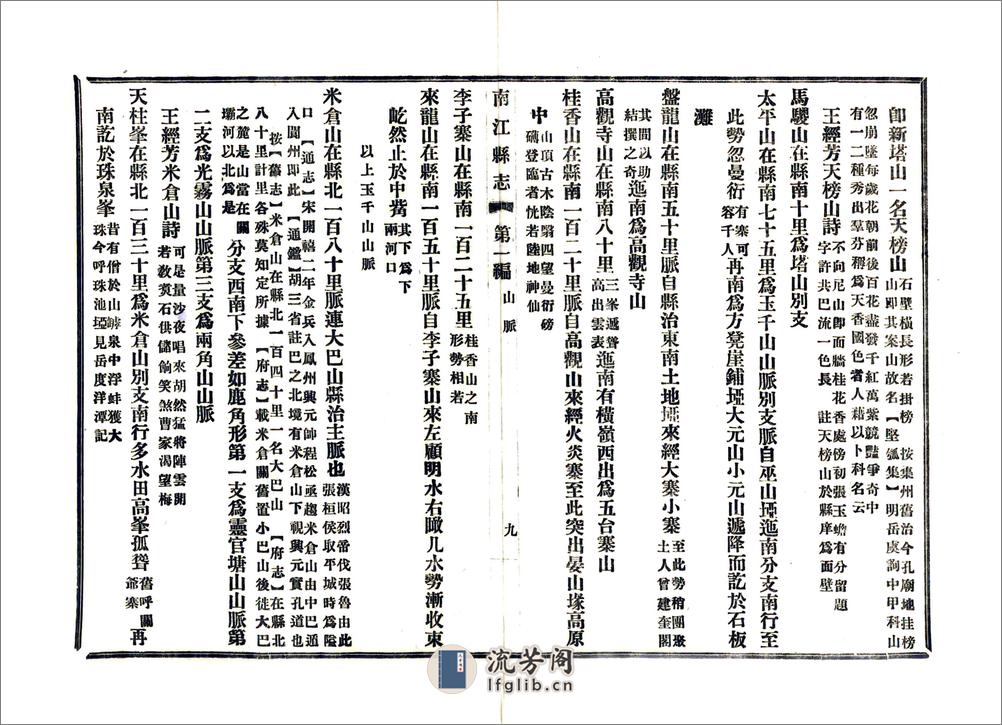 卽新塔山一名天榜山石壁橫長形若掛榜 按集州舊治今孔廟地挂榜山卽其案山故名【堅瓠集】明岳虞詢中甲科山
忽崩墜每歲花朝前後百花盡發千紅萬紫競豔爭奇中有一二種秀出羣芬稱爲天香國色耆人藉以卜科名云
王經芳天榜山詩不向尼山卽面牆桂花香處傍初張玉蟾有分留題字許共巴流一色長 註天榜山於縣庠爲面壁
馬騣山在縣南十里爲塔山別支
太平山在縣南七十五里爲玉千山山脈別支脈自巫山埡迤南分支南行至
此勢忽曼衍有寨可容千人再南爲方凳崖鋪埡大元山小元山遞降而訖於石板
灘
盤龍山在縣治南五十里脈自縣治東南土地埡來經大寨小寨至此勢稍團聚土人曾建奎閣
其間以助結撰之奇迤南爲高觀寺山
高觀寺山在縣南八十里三峯遞聳高出雲表迤南有橫嶺西出爲五台寨山
桂香山在縣南一百二十里脈自高觀山來經火炎寨至此突出晏山埡高原
中山頂古木陰翳四望曼衍磅礴登臨者恍若陸地神仙
南江縣志 第一編 山脈 九
李子寨山在縣南一百二十五里桂香山之南形勢相若
來龍山在縣南一百五十里脈自李子寨山來左顧明水右瞰儿水勢漸收束
屹然止於中觜其下爲下兩河口
以上玉千山山脈
米倉山在縣北一百八十里脈連大巴山縣治主脈也漢昭烈帝伐張魯由此張桓侯取平城時爲隘
口【通志】宋開禧二年金兵入鳳州興元帥程松亟趨米倉山由中巴遁入閬州卽此【通鑑】胡三省註巴之北境有米倉山下視興元實孔道也
按【舊志】米倉山在縣北一百四十里一名大巴山【府志】在縣北八十里計里各殊莫知定所據【府志】載米倉關舊置小巴山後徙大巴
之麓是山當在關壩河以北爲是分支西南下參差如鹿角形第一支爲靈官塘山山脈第
二支爲光霧山山脈第三支爲兩角山山脈
王經芳米倉山詩可是量沙夜唱來胡然猛將陣雲開若教煑石供儲餉笑煞曹家渴望梅
天柱峯在縣北一百三十里爲米倉山別支南行多水田高峯孤聳舊呼關爺寨再
南訖於珠泉峯昔有僧於山罅泉中浮蚌獲大珠今呼珠池埡見岳度洋潭記
流芳阁
lfglib.cn